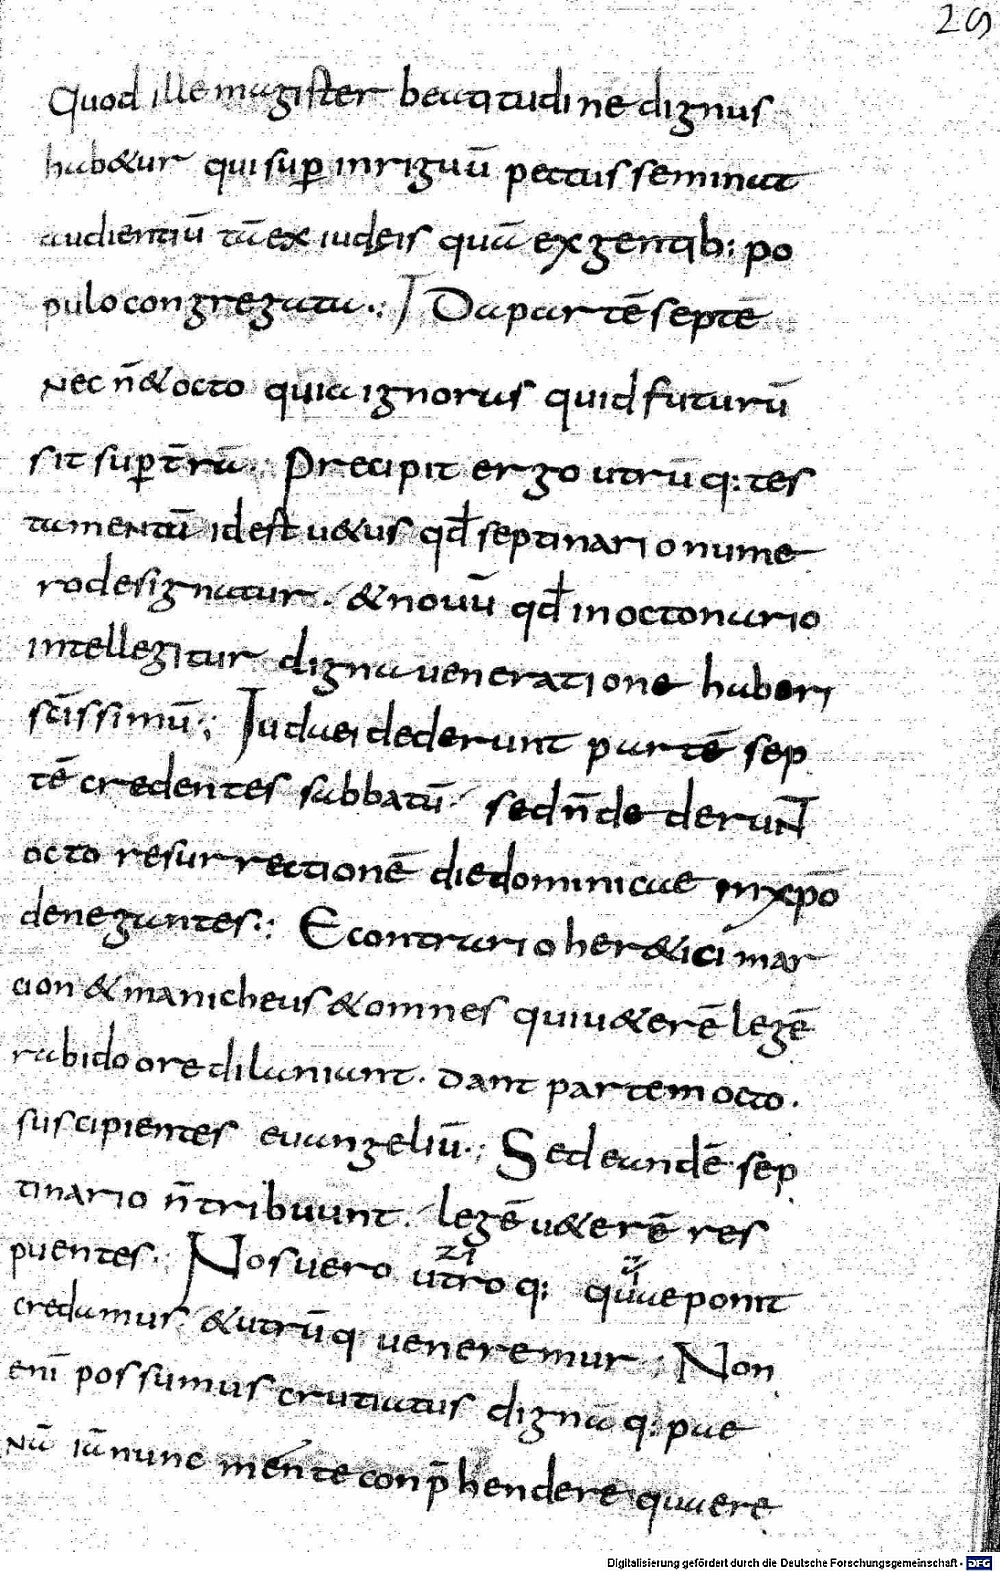 29
Quod ille magister beatitudine dignus
hab&ur qui sup̄ inriguū pectus seminat
audientiū tā ex iudeis quā ex gentib: po
pulo congregata·: Da partē septē
nec n̄ & octo quia ignoras quid futurū
sit sup̄ t̄rā·: Precipit ergo utrūq: tes
tamentū id est u&us qđ septinario nume
ro designatur· & nouū qđ in octonario
intellegitur digna ueneratione haberi
sc̄issimū·: Iudaei dederunt partē sep
tē credentes sabbatū· sed n̄ dederunt
octo resurrectionē die dominicae in xp̄o
denegantes·: E contrario her&ici mar
cion & manicheus & omnes qui u&erē legē
rabido ore dilaniant· dant partem octo·
suscipientes euangeliū·: Sed eandē sep
tinario n̄ tribuunt· legē u&erē res
puentes· Nos uero utroq: quae ponit
credamus· & utrūq ueneremur; Non
enī possumus cruciatus digna q: pae
nā iā nunc mente conp̄hendere quaere
Digitalisierung gefördert durch die Deutsche Forschungsgemeinschaft - DFG